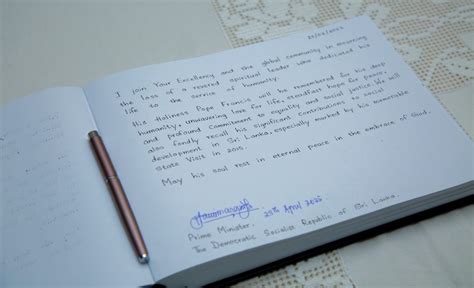 I join Your Excellency and the global community in mourning
the loss of a revered spiritual leader who dedicated his
life to the service of humanity.
His Holiness Pope Francis will be remembered for his deep
humanity, unwavering love for life, steadfast hope for peace,
and profound commitment to equality and social justice. We will
also fondly recall his significant contributions to social
development in Sri Lanka, especially marked by his memorable
State Visit in 2015.
May his soul rest in eternal peace in the embrace of God.
25th April 2025
Prime Minister.
The Democratic Socialist Republic of Sri Lanka.